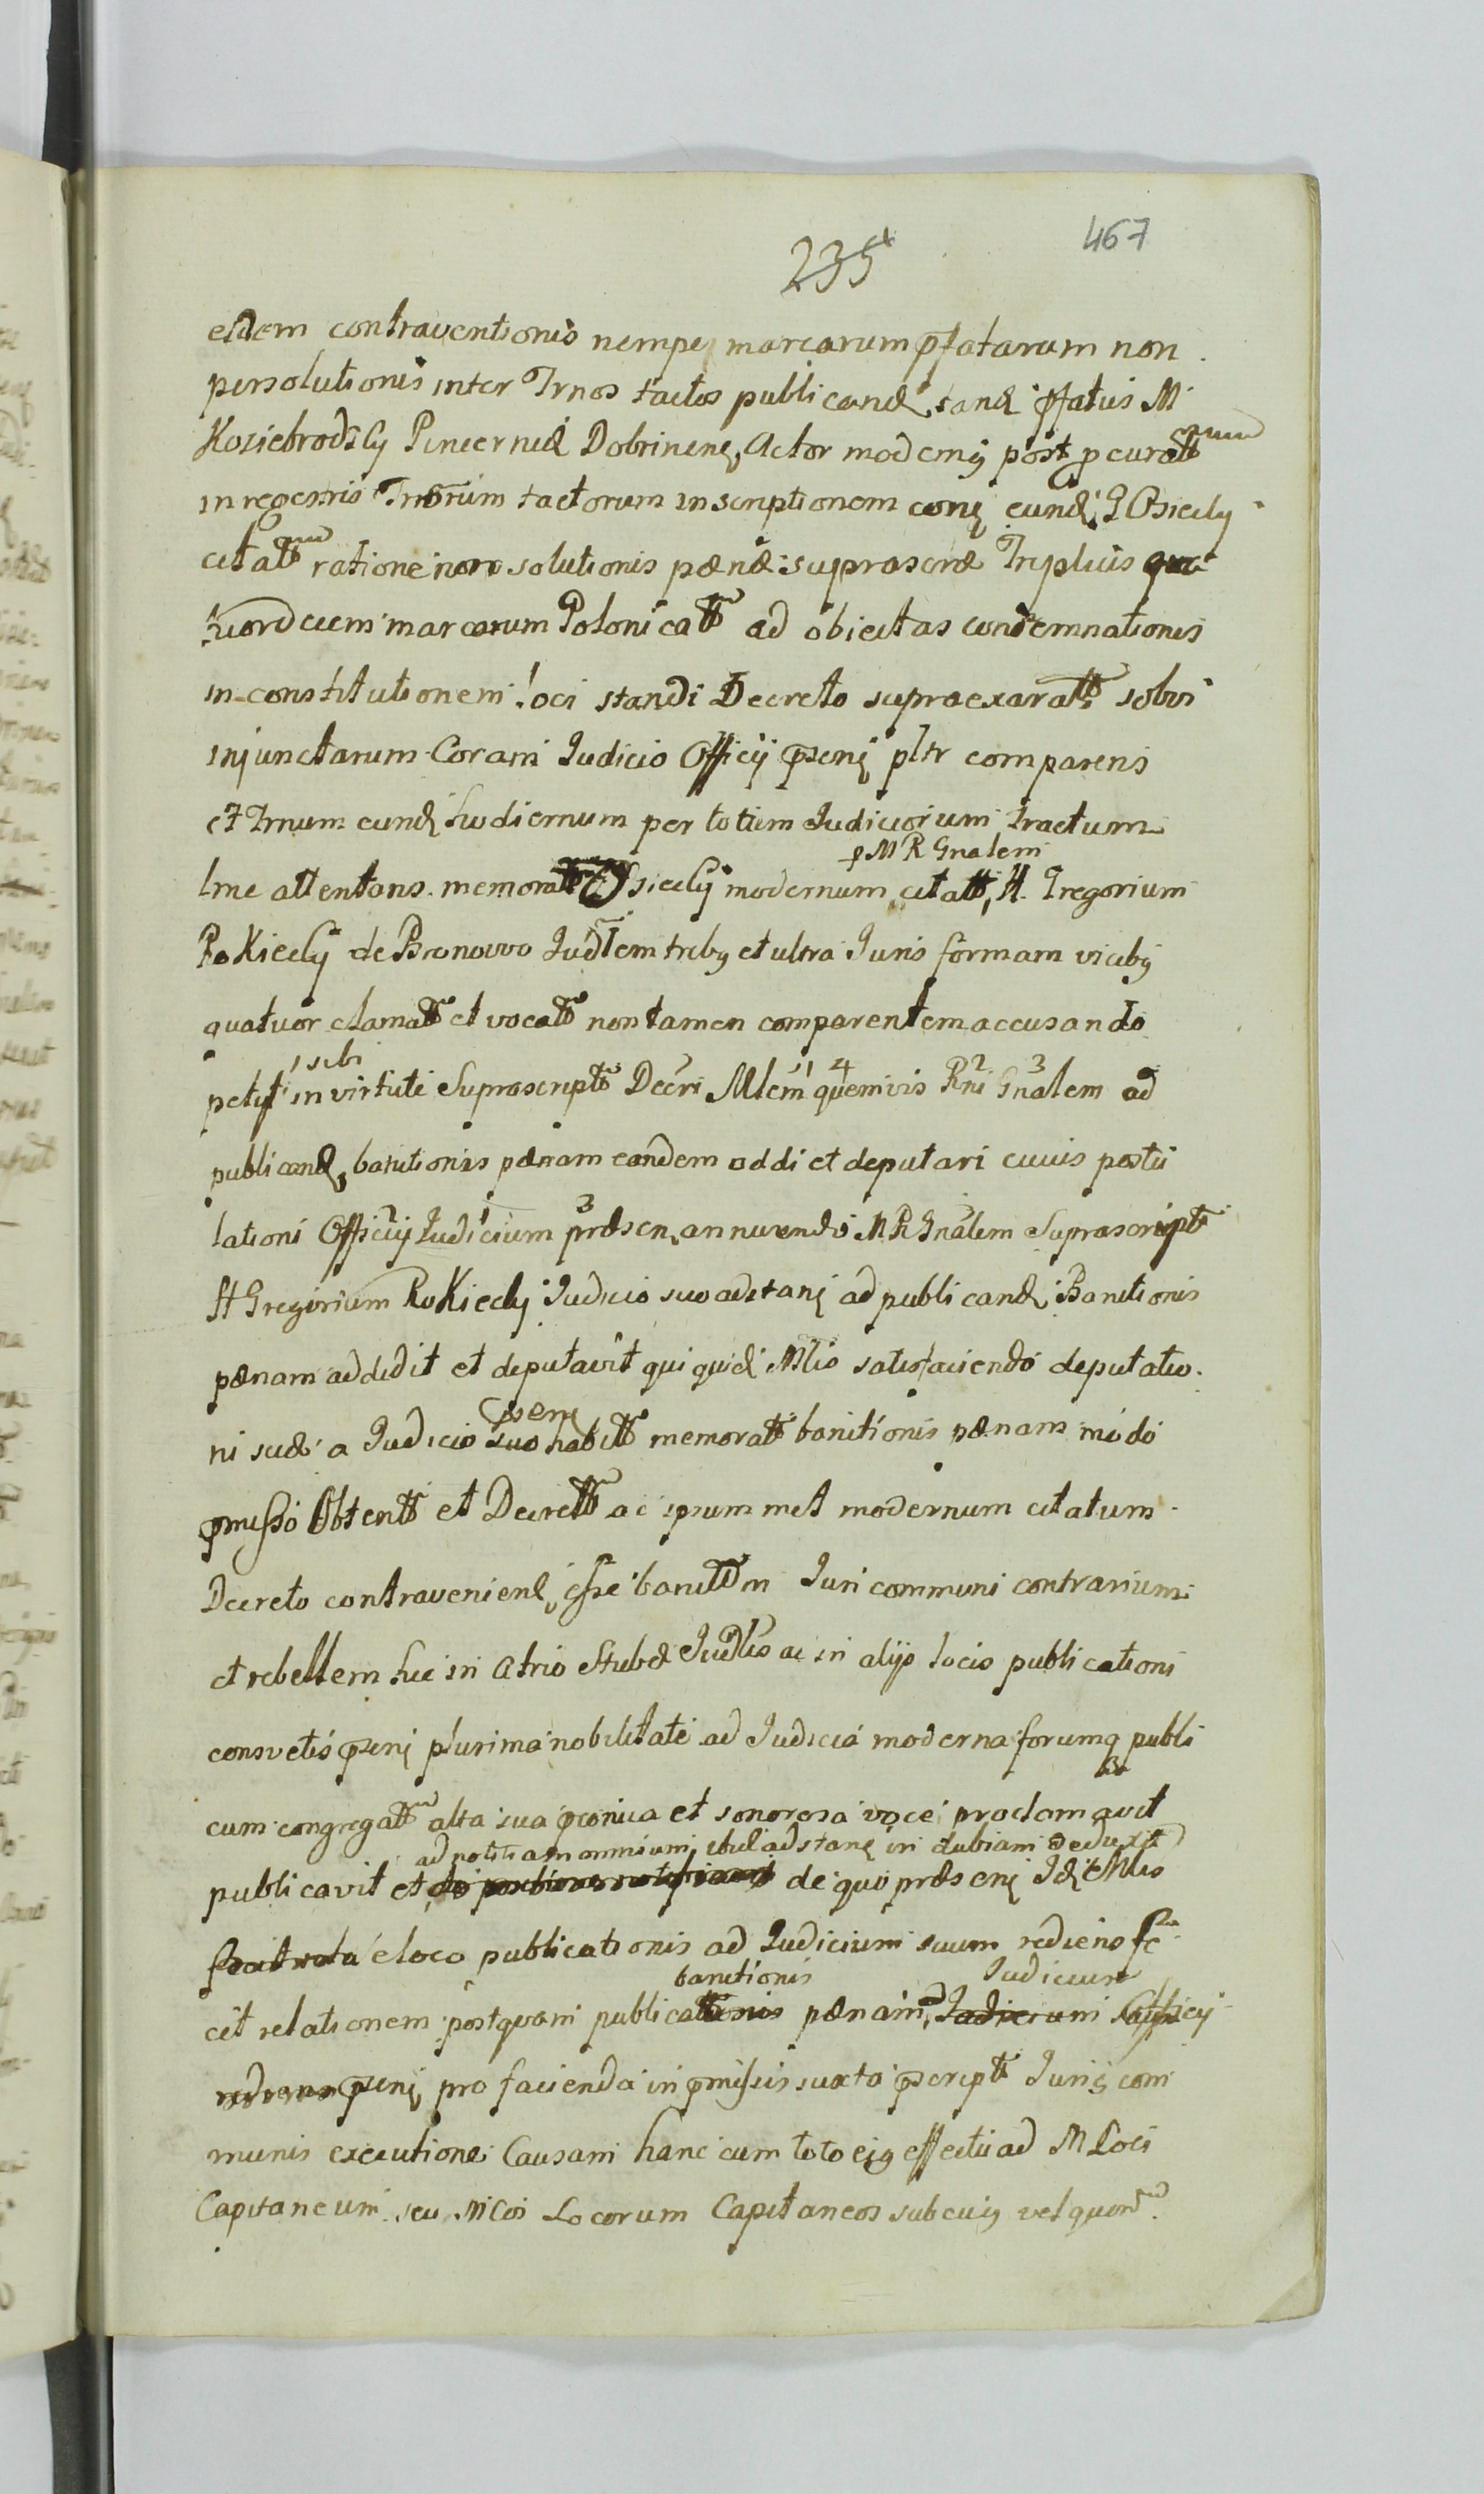 467
235
eidem contraventionis nempe marcarum pfatarum non
persolutionis inter Trnos tactos publicand tand pfatus M
Kosiebrodzky Pincernid Dobrinen Actor modernus post procurat
in regestris Tribrium tactorum inscriptionem coni eund G Osiecky
citatt ratione non solutionis pænæ suprascræ Triplicis qua
tuordecim marcarum Polonicatt ad obiectas condemnationes
in constitutionem loci standi Decreto supraexaratt solvi
injunctarum Coram Judicio Officij pseni pltr comparens
et Trnum eund hodiernum per totum Judiciorium tractum
p M R Gnalem
lme attentans memoratt Osiecky modernum citatt, H. Gregorium
Rokicky de Bronowo Judlem trebus et ultra Juris formam vicibus
quatuor clamatt et vocatt non tamen comparentem accusando
sibi
petyt in virtute Suprascriptt Decri Mlem 1 quemvis 4 Rni 2 Gnalem 3 ad
publicand banitionis pænam eandem addi et deputari cuius postu
lationi Officij 2 Judicium 1 præsen 3 annuendo M R Gnalem Suprascript
H Gregorium Rokicky Judicio suo adstani ad publicand Banitionis
pænam addidit et deputavit qui quid Mlis satisfaciendo deputatio
pseni
ni suæ a Judicio suo habitt memoratt banitionis pænam modo
pmisso Obtentt et Decrett ac ipsummet modernum citatum
Decreto contravenienl esse banitum Juri communi contrarium
et rebellem hic in atrio Stubæ Judlis ac in alijs locis publicationi
consvetis pseni plurima nobilitate ad Judicia moderna forumq publi
cum congregatt alta sua pconica et sonorosa voce proclamavit
ad notitiam omnium ibid adstani in dubiam deduxit
publicavit et de quo præseni Id Mlis
e loco publicationis ad Judicium suum rediens fe
banitionis Judicium
cit relationem postquam publicationis pænam, Judicium Officij
pseni pro facienda in pmissis juxta pscriptt Juris com
munis executione Causam hanc cum toto eius effectu ad M Loci
Capitaneum seu Mcos Locorum Capitaneos sub cuius vel quor